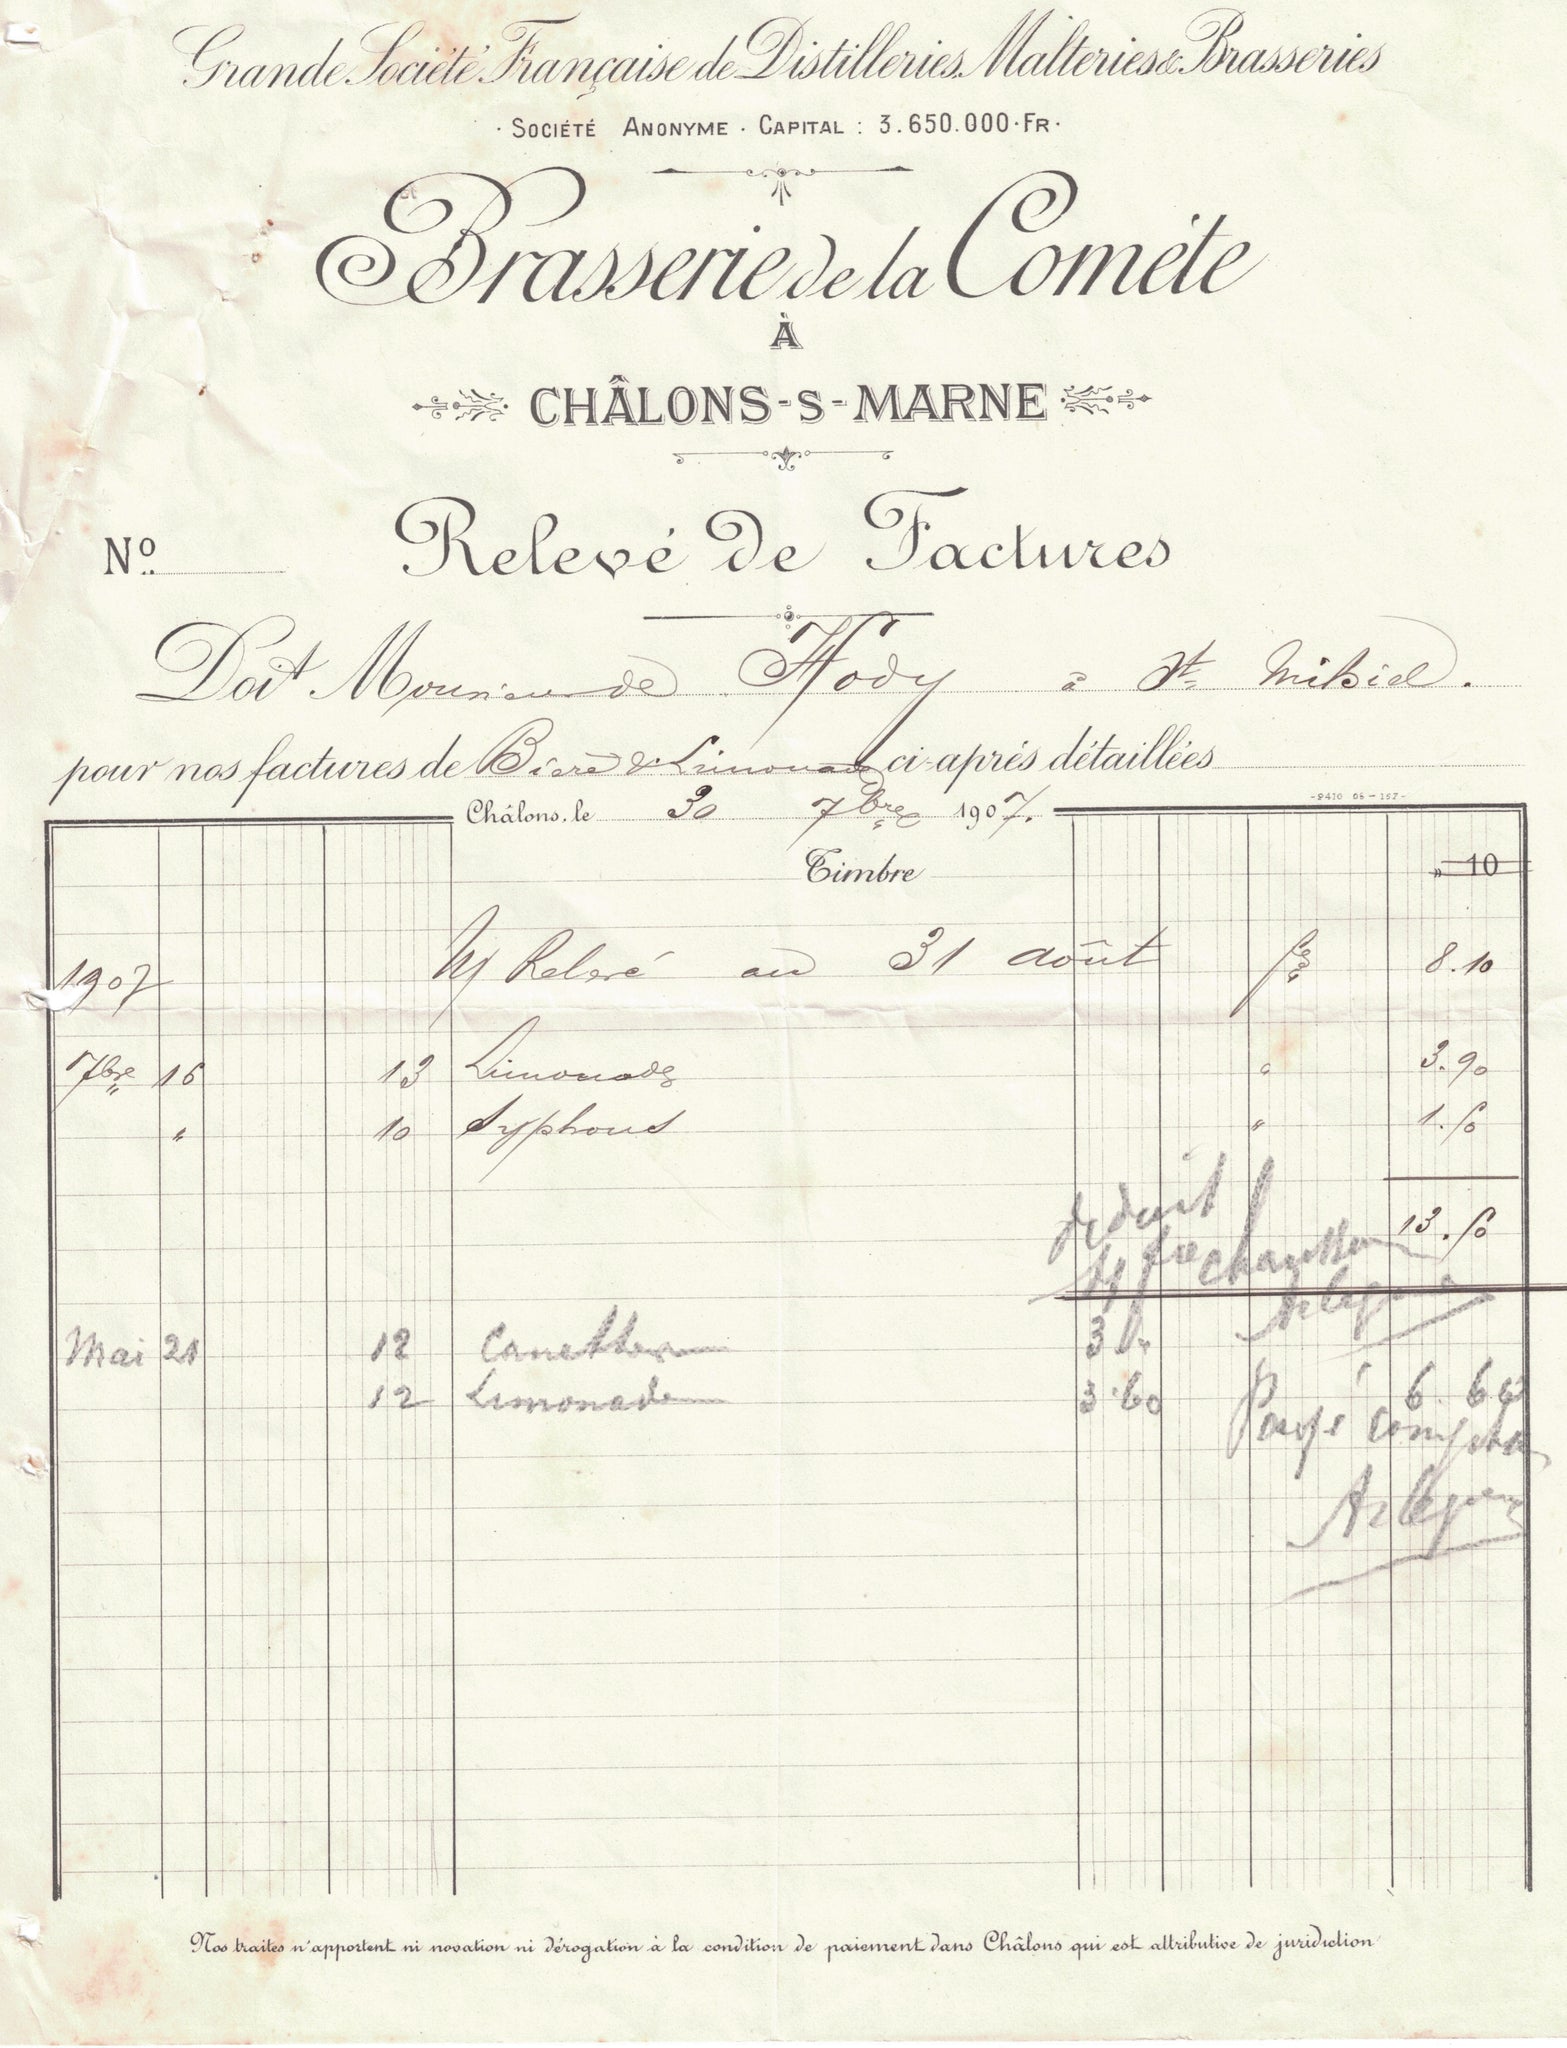 Grande Société Française de Distilleries, Malteries & Brasseries
· SOCIÉTÉ ANONYME · CAPITAL : 3.650.000 · FR ·
Brasserie de la Comète
À
CHÂLONS-S-MARNE
Relevé de Factures
Nº
Doit Monsieur de Hody à St Mihiel.
pour nos factures de Bière & Limonade ci-après détaillées
-9410 06-167-
Châlons, le 30 7bre 1907.
Timbre " 10
1907 Relevé au 31 août 8.10
7bre 16 13 Limonades " 3.90
" 10 Syphons " 1.50
déduit 13.50
Mai 21 12 Canettes 3 "
12 Limonade 3.60 6.60
Payé comptant
Nos traites n'apportent ni novation ni dérogation à la condition de paiement dans Châlons qui est attributive de juridiction